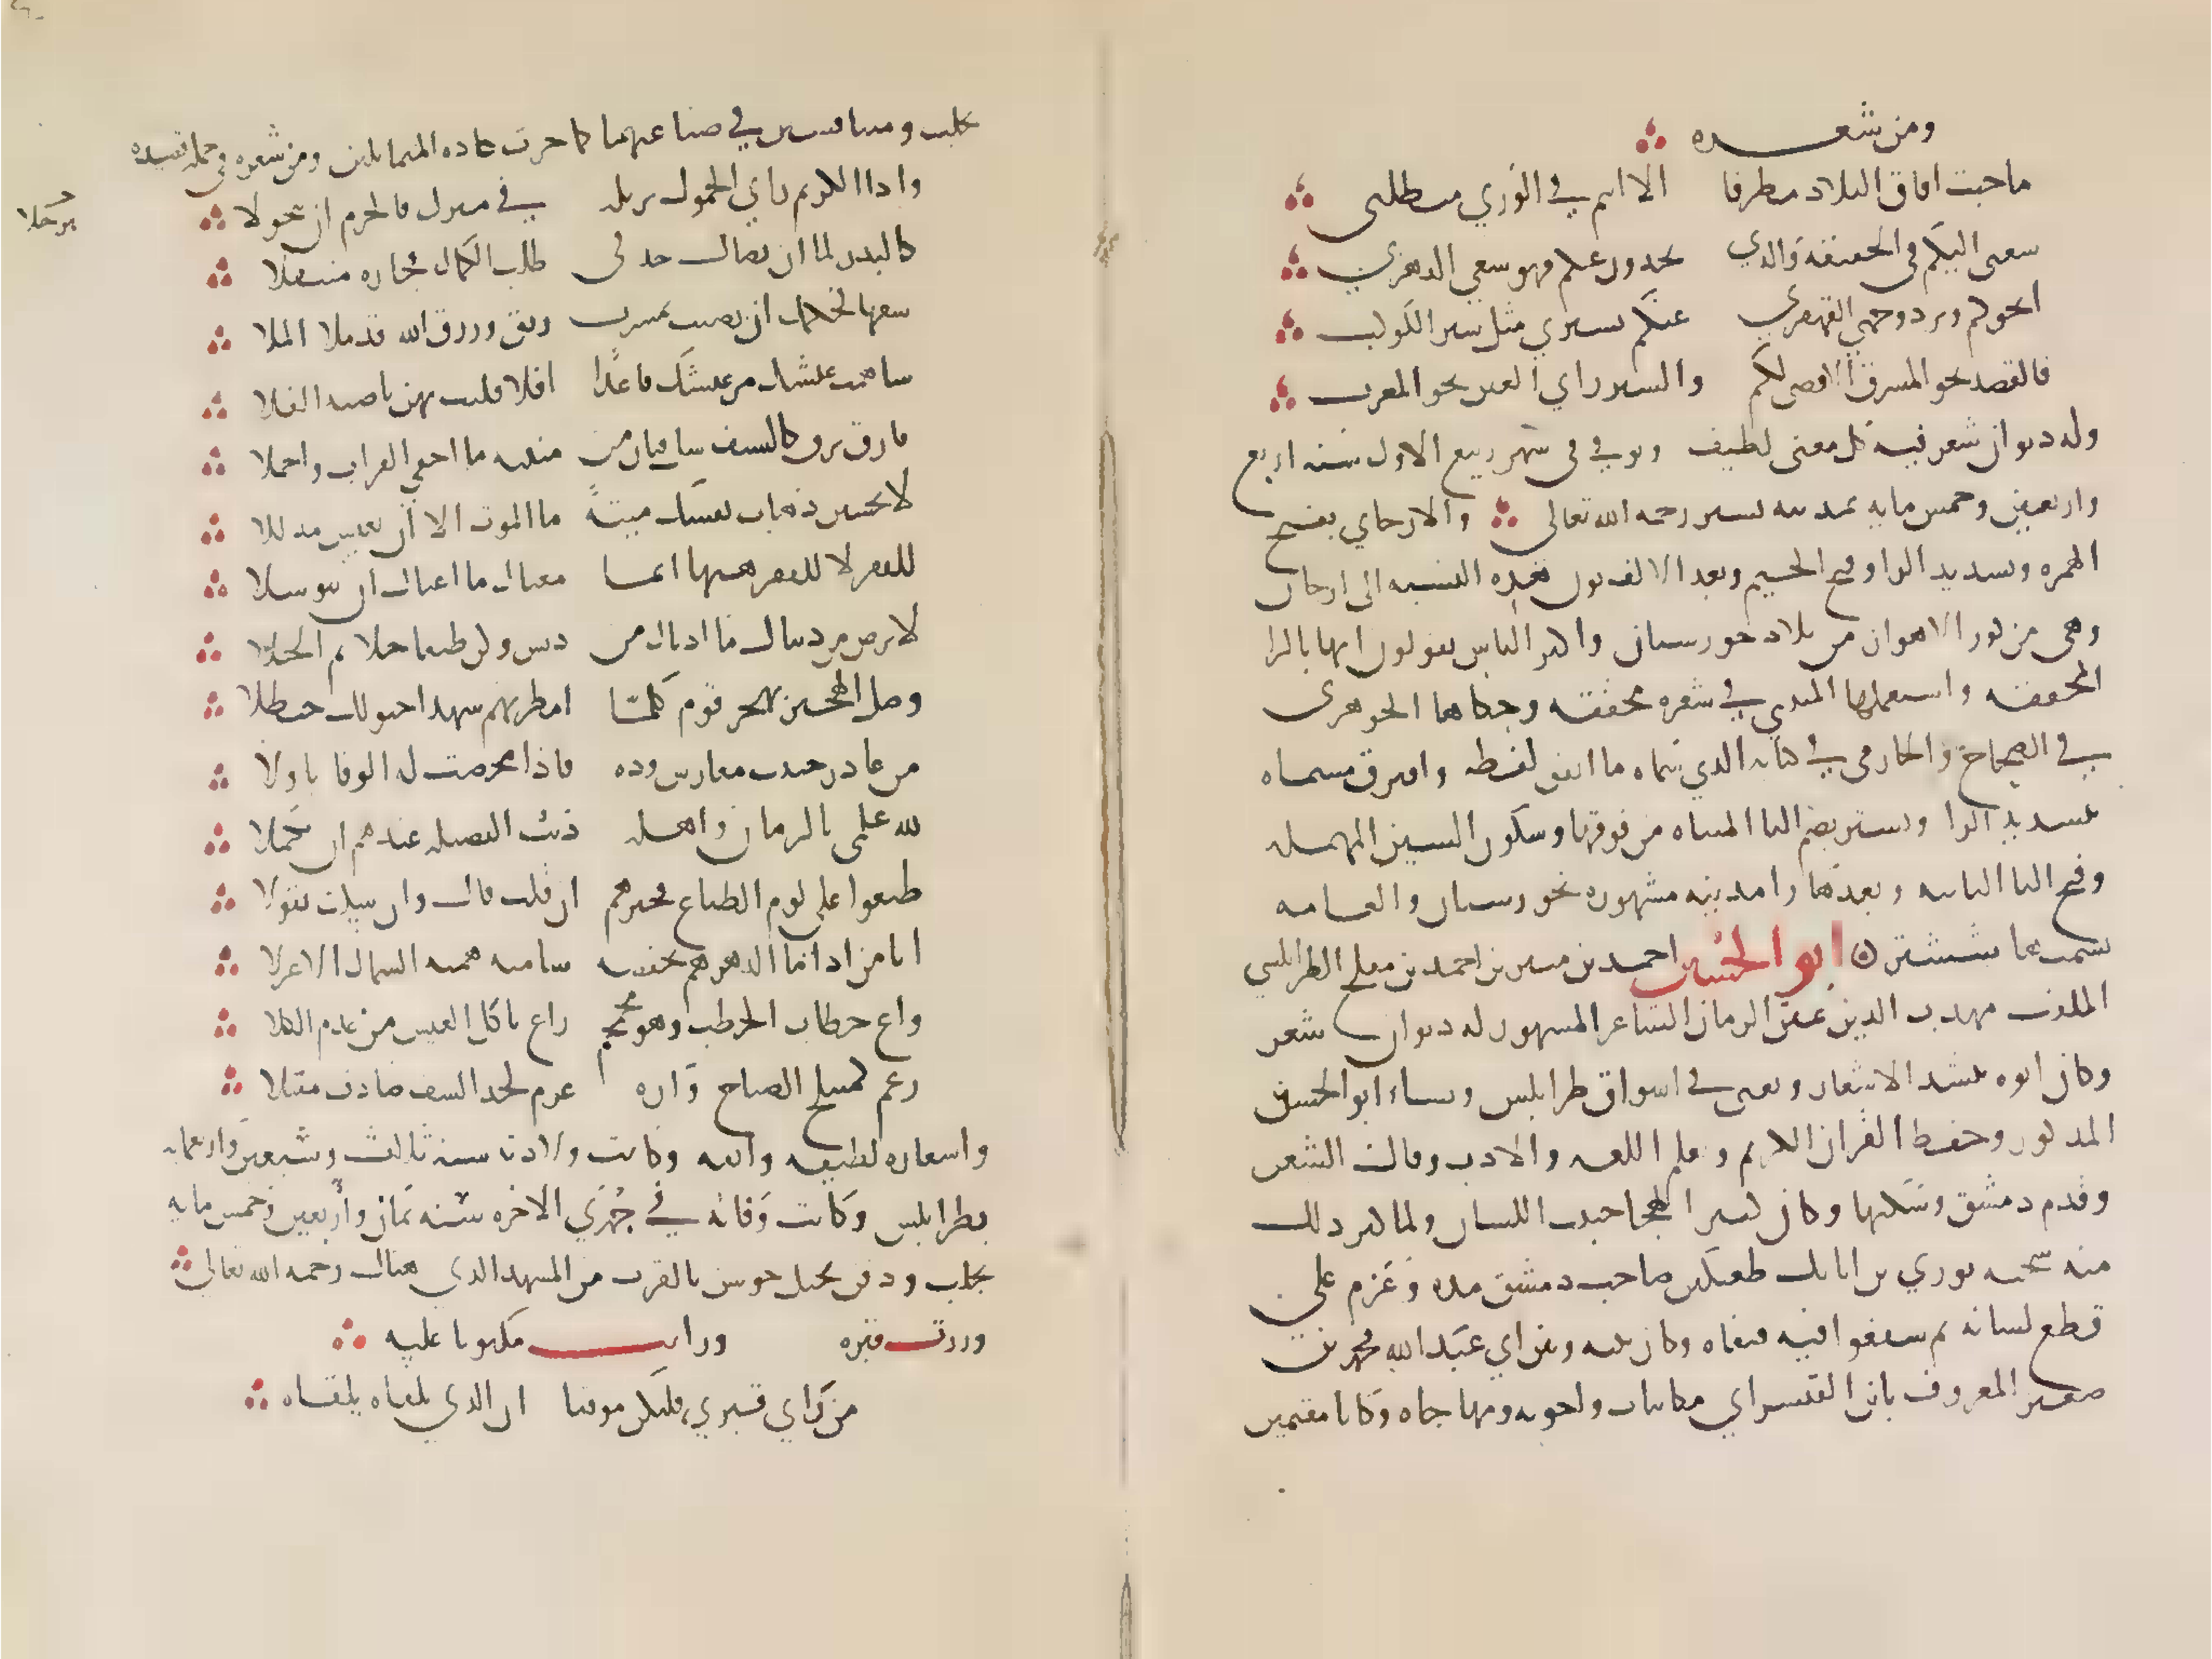 ومن شعره
ما جبت افاق البلاد مطوفا الا انتم في الوري متطلبى
سعيى اليكم في الحقيقه والذي تجدون عنكم فهو سعي الدهر بي
انحوكم ويرد وجهي القهقري عنكم فسيري مثل سير الكوكب
فالقصد نحو المشرق الاقصى لكم والسير راي العين نحو المغرب
وله ديوان شعر فيه كل معنى لطيف وتوفي في شهر ربيع الاول سنه اربع
واربعين وخمس مايه بمدينه تستر رحمه الله تعالى والارجاي بفتح
الهمزه وتشديد الرا وفتح الجيم وبعد الالف نون هذه النسبه الى ارجان
وهي من كور الاهواز من بلاد خورستان واكثر الناس يقولون انها بالرا
المخففه واستعملها المتنبي في شعره مخففه وحكاها الجوهرى
في الصحاح والحازمى في كتابه الذي سماه ما اتفق لفظه وافترق مسماه
بتشديد الرا وتستر بضم التا المثناه من فوقها وسكون السين المهمله
وفتح التا الثانيه وبعدها را مدينه مشهوره بخورستان والعامه
تسميها ششتر ابو الحسين احمد بن منير بن احمد بن مفلح الطرابلسي
الملقب مهذب الدين عين الزمان الشاعر المشهور له ديوان شعر
وكان ابوه ينشد الاشعار ويغنى في اسواق طرابلس ونشاء ابو الحسين
المذكور وحفظ القران الكريم وتعلم اللغه والادب وقال الشعر
وقدم دمشق وسكنها وكان كثير الهجا خبيث اللسان ولما كثر ذلك
منه سجنه بوري بن اتابك طغتكين صاحب دمشق مده وعزم على
قطع لسانه ثم شفعوا فيه فنفاه وكان بينه وبين ابي عبد الله محمد بن
صغير المعروف بابن القيسراي مكاتبات واجوبه ومهاجاه وكانا مقيمين
بحلب ومتنافسين في صناعتهما كما جرت عاده المتماثلين ومن شعره في جمله قصيده
واذا الكريم راي الخمول نزيله في منزل فالحزم ان يتحولا
ترحلا
كالبدر لما ان تضال جد فى طلب الكمال فحازه متنقلا
سفها لحلمك ان رضيت بمشرب رنق ورزق الله قد ملا الملا
ساهمت عيشك مر عيشك قاعدًا افلا فليت بهن ناصيه الفلا
فارق ترق كالسيف سل فبان من متنيه ما اخفى القراب واخملا
لا تحسبن ذهاب نفسك ميتةً ما الموت الا ان تعيش مذللا
للقفر لا للفقر هبها انما مغناك ما اغناك ان تتوسلا
لا ترض من دنياك ما ادناك من دنس وكن طيفا جلا ثم انجلا
وصل الهجير بهجر قوم كلما امطرتهم شهدا جنوا لك حنظلا
من غادر خبثت مغارس وده فاذا محضت له الوفا تاولا
لله علمى بالزمان واهله ذنب الفضيله عندهم ان تكملا
طبعوا على لوم الطباع فخيرهم ان قلت قال وان سكت تقولا
انا من اذا ما الدهر هم بخفضه سامته همته السماك الاعزلا
واع خطاب الخطب وهو مجمجم راع اكل العيس من عدم الكلا
زعم كمنبلج الصباح وراه عزم كحد السيف صادف مقتلا
واشعاره لطيفه رايقه وكانت ولادته سنه ثالث وسبعين واربعمايه
بطرابلس وكانت وفاته في جمدي الاخره سنه ثمان واربعين وخمس مايه
بحلب ودفن بجبل جوشن بالقرب من المشهد الذي هناك رحمه الله تعالى
وزرت قبره ورايت مكتوبا عليه
من زار قبري فليكن موقنا ان الذي القاه يلقاه